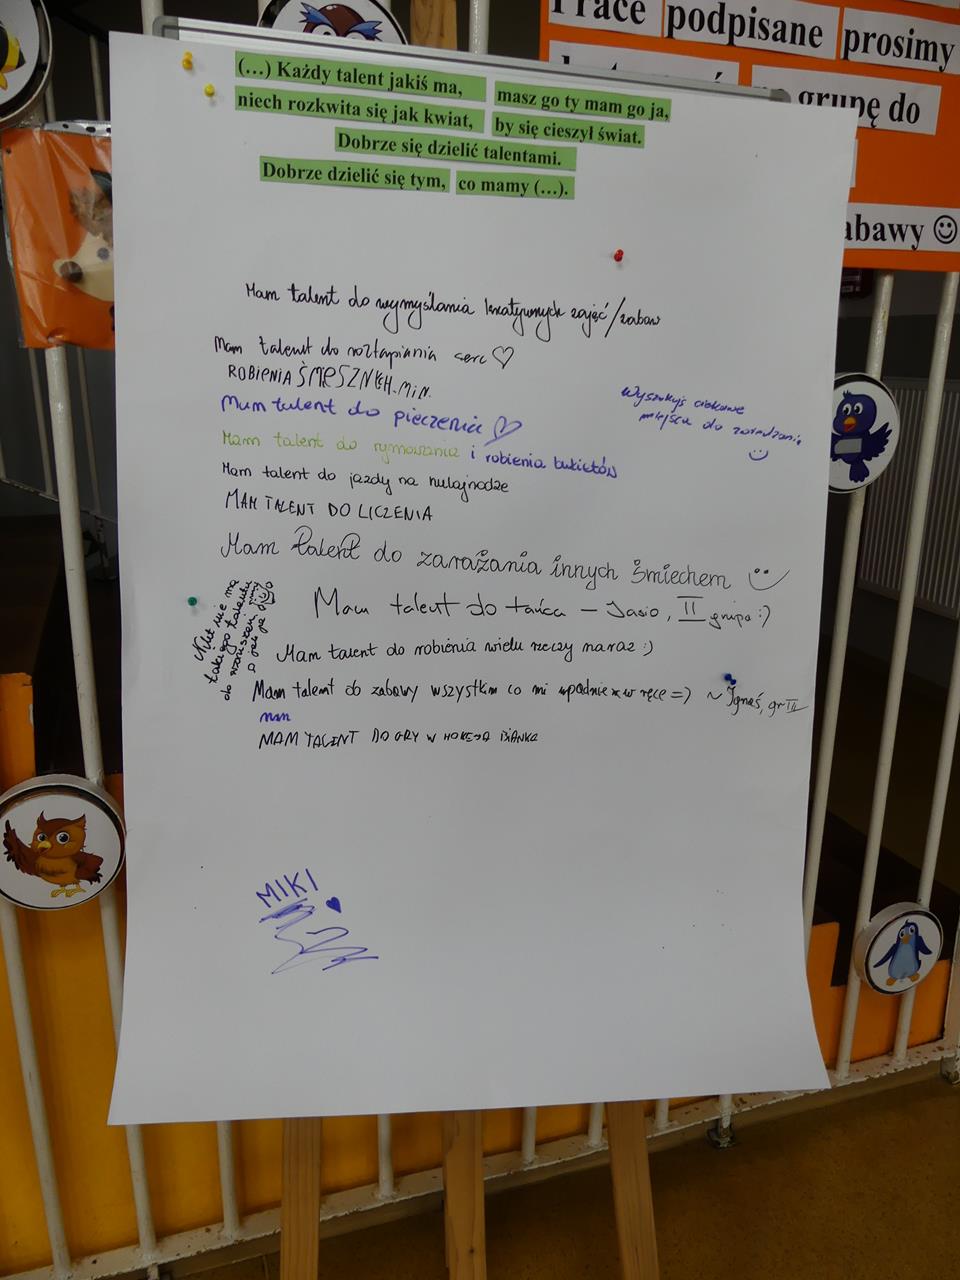 Prace podpisane prosimy
grupę do
abawy ☺
(...) Każdy talent jakiś ma, masz go ty mam go ja,
niech rozkwita się jak kwiat, by się cieszył świat.
Dobrze się dzielić talentami.
Dobrze dzielić się tym, co mamy (...).
Mam talent do wymyślania kreatywnych zajęć/zabaw
Mam talent do roztapiania serc ♡
ROBIENIA ŚMESZNYCH MIN.
Mam talent do pieczenia ♡
Wyszukuję ciekawe
miejsca do
Mam talent do rymowania i robienia bukietów
Mam talent do jazdy na hulajnodze
MAM TALENT DO LICZENIA
Mam talent do zarażania innych śmiechem
Mam talent do tańca – Jasio, II grupa :)
Nikt nie ma
takiego talentu
do wzruszeń
Mam talent do robienia wielu rzeczy naraz :)
Mam talent do zabawy wszystkim co mi wpadnie w ręce =) ~ Ignaś, gr III
MAM TALENT DO GRY W HOKEJA
MIKI